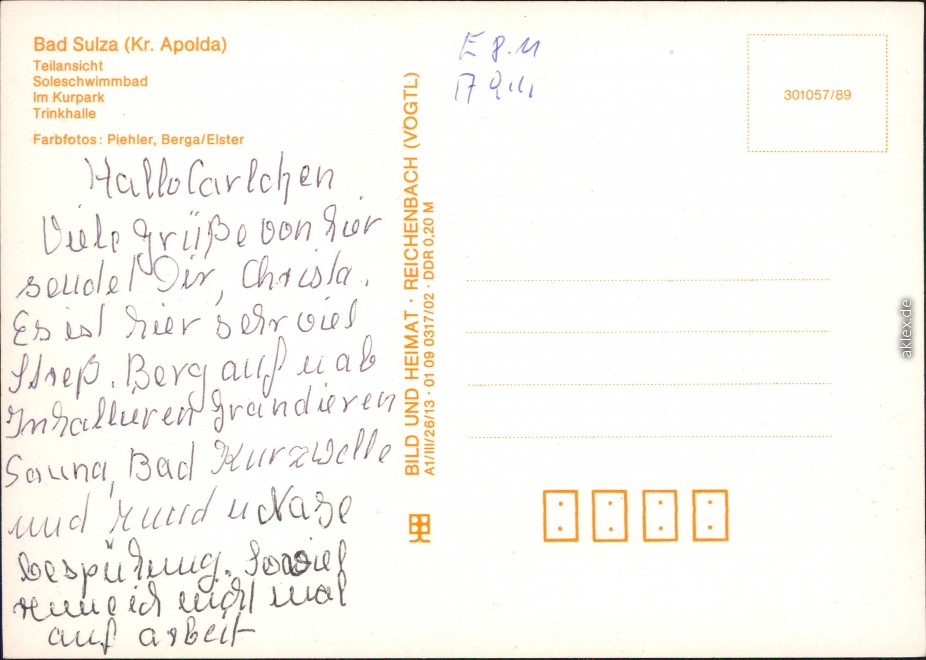 Bad Sulza (Kr. Apolda)
Teilansicht
Soleschwimmbad
Im Kurpark
Trinkhalle
Farbfotos: Piehler, Berga/Elster
Hallo Carlchen
Viele Grüße von hier
sendet Dir, Christa.
Es ist hier sehr viel
Streß. Berg auf u ab
Inhallieren Grandieren
Sauna, Bad Kurzwelle
und Mund u Nase
bespühung. Soviel
renne ich nicht mal
auf arbeit
BILD UND HEIMAT · REICHENBACH (VOGTL)
A1/III/26/13 · 01 09 0317/02 · DDR 0,20 M
E 8.11
301057/89
aklex.de